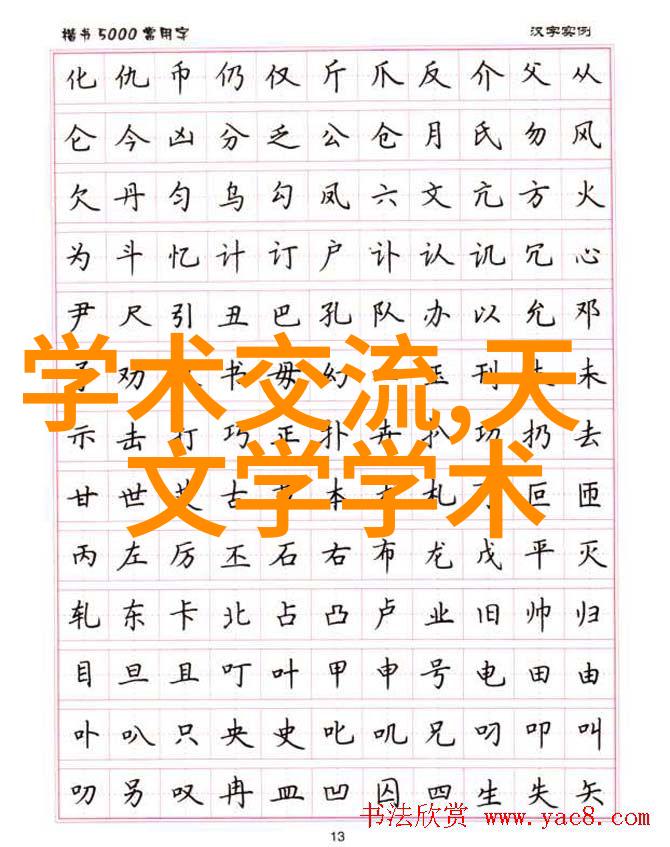 楷书5000常用字 汉字实例
化仇币仍仅斤爪反介父从
仑今凶分乏公仓月氏勿风
欠丹匀乌勾凤六文亢方火
为斗忆计订户讣认讥冗心
尹尺引丑巴孔队办以允邓
劝 书毋幻 刊 未
学术交流,天
示击打巧正扑卉扒功扔去
甘世 古 本 札 叵匝
文学学术
丙左厉丕石右布龙戊平灭
轧东卡北占凸卢业旧帅归
目旦且叮叶甲申号电田由
卟叭只央史叱叽兄叼叩叫
叻另叹冉皿凹囚四生失矢
书法欣赏 www.yac8.com
13